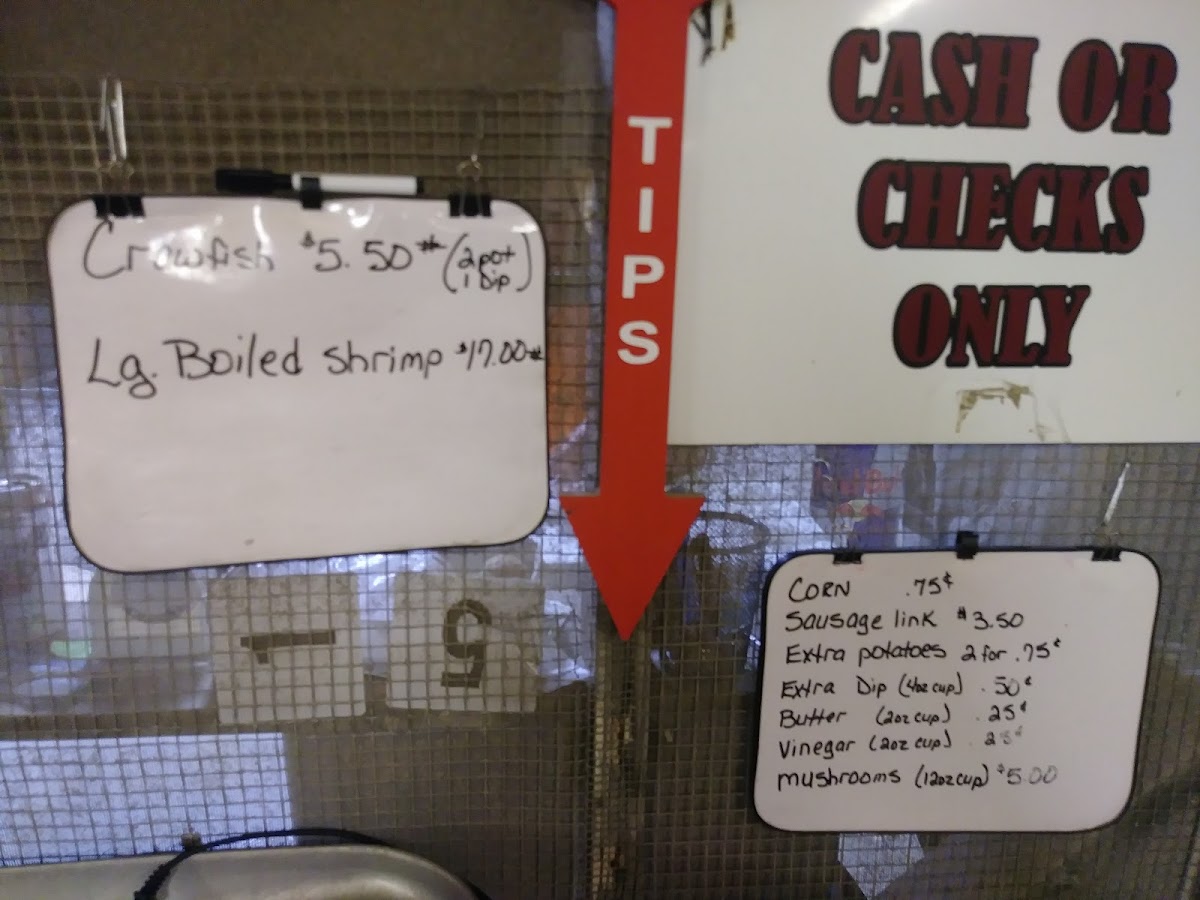 Crawfish $5.50# (2pot 1 Dip)
Lg. Boiled shrimp $17.00#
TIPS
CASH OR
CHECKS
ONLY
CORN .75¢
Sausage link $3.50
Extra potatoes 2 for .75¢
Extra Dip (4oz cup) .50¢
Butter (2oz cup) .25¢
Vinegar (2oz cup) .25¢
mushrooms (12oz cup) $5.00